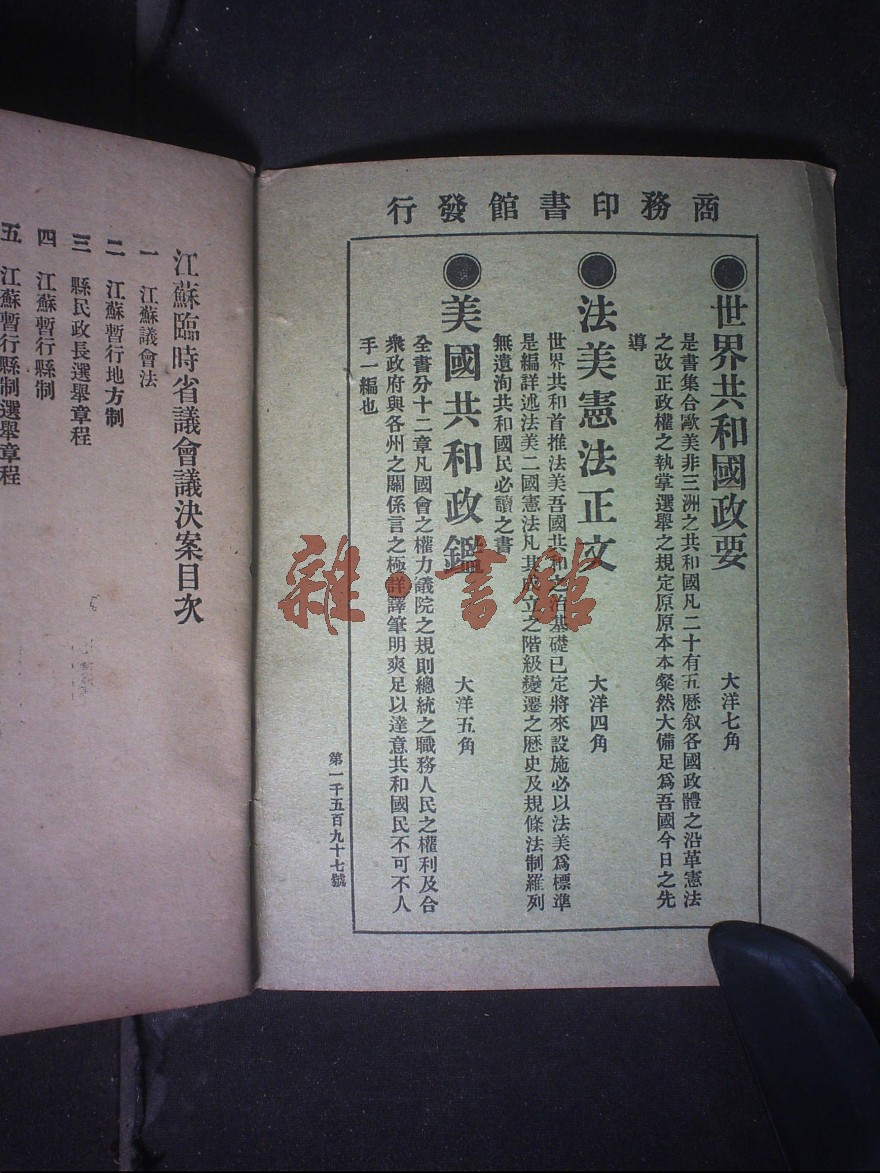 商務印書館發行
世界共和國政要
大洋七角
是書集合歐美非三洲之共和國凡二十有五歷叙各國政體之沿革憲法
之改正政權之執掌選舉之規定原原本本粲然大備足爲吾國今日之先
導
法美憲法正文
大洋四角
世界共和首推法美吾國共和之治基礎已定將來設施必以法美爲標準
是編詳述法美二國憲法凡其成立之階級變遷之歷史及規條法制羅列
無遺洵共和國民必讀之書
美國共和政鑑
大洋五角
全書分十二章凡國會之權力議院之規則總統之職務人民之權利及合
衆政府與各州之關係言之極詳譯筆明爽足以達意共和國民不可不人
手一編也
第一千五百九十七號
江蘇臨時省議會議決案目次
一 江蘇議會法
二 江蘇暫行地方制
三 縣民政長選舉章程
四 江蘇暫行縣制
五 江蘇暫行縣制選舉章程
雜·書館